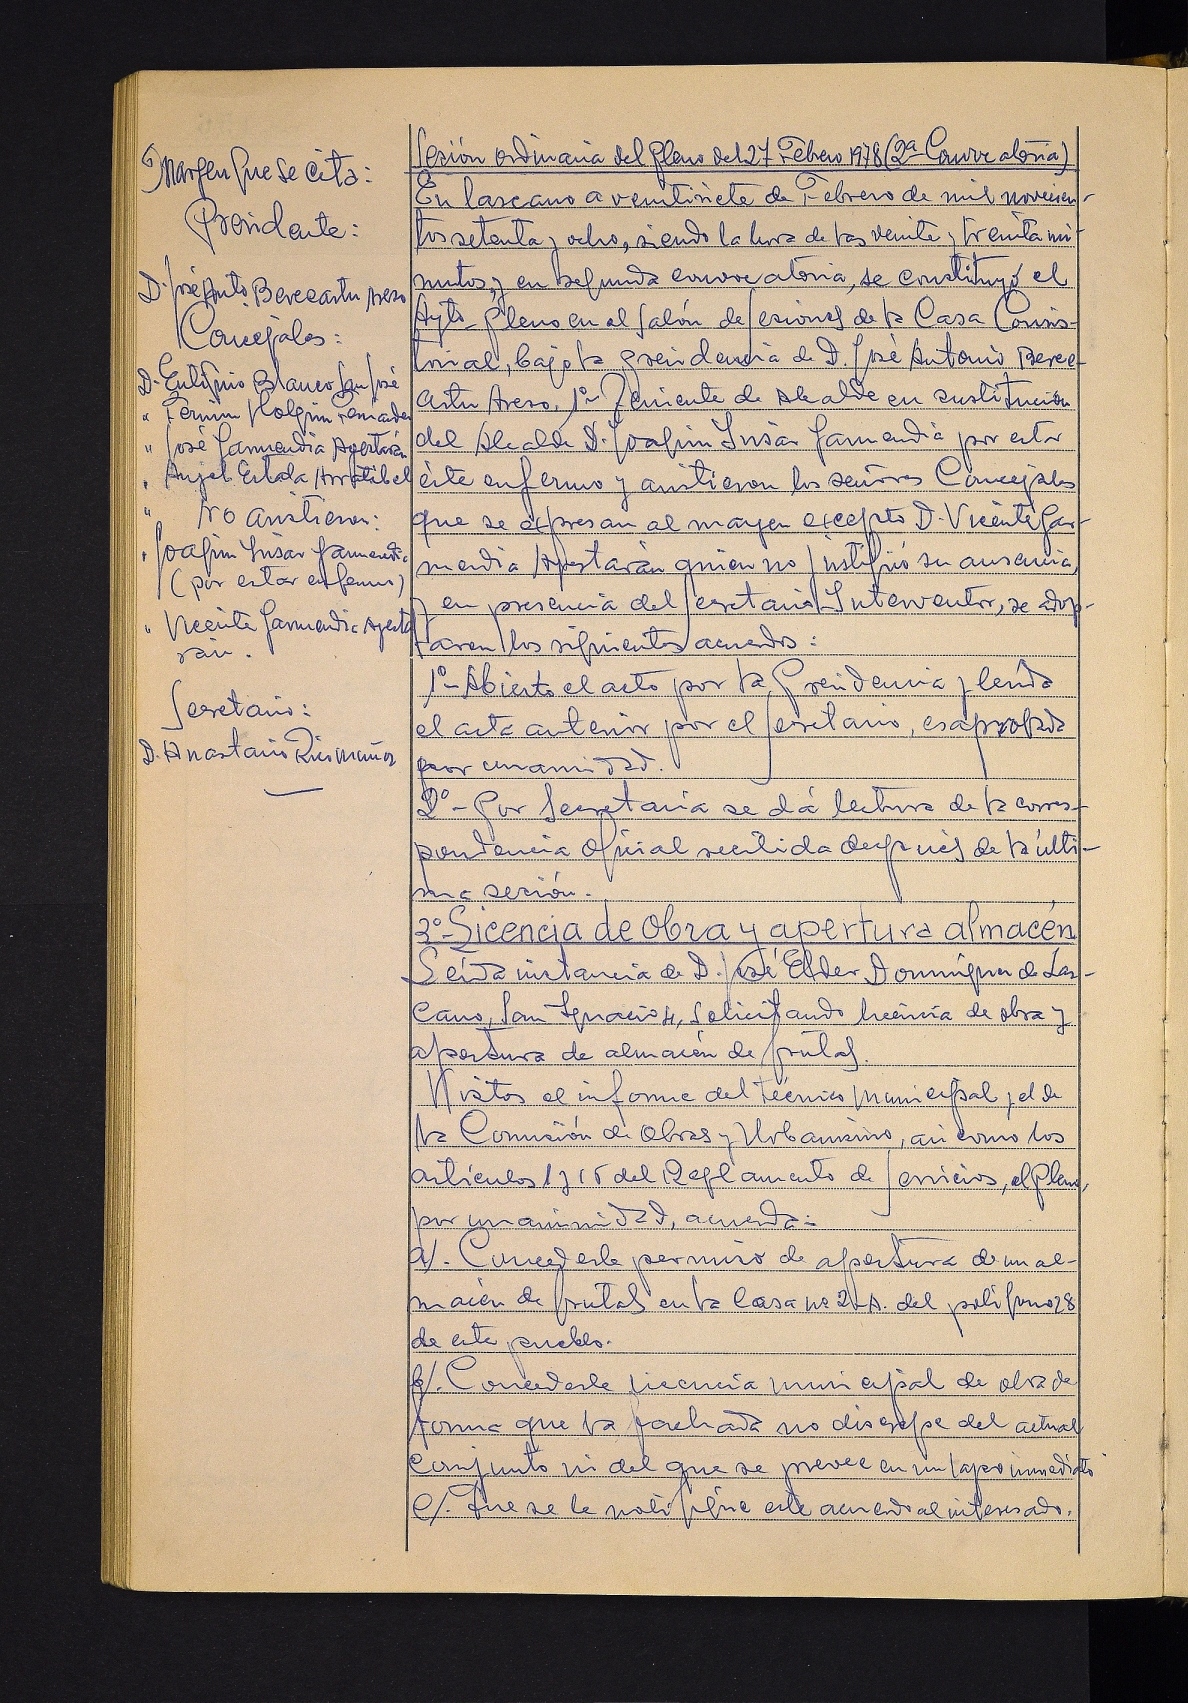 Margen que se cita:
Presidente:
D. José Antº Bereciartu Areso
Concejales:
D. Eutiquio Blanco San José
" Fermin Holgin Fernandez
" José Garmendia Apestarán
" Angel Estala Arratibel
" No asistieron:
" Joaquin Insar Garmendia
(por estar enfermo)
" Vicente Garmendia Apesta
rán.
Secretario:
D. Anastasio Rico Muñoz
Sesión ordinaria del Pleno del 27 Febrero 1978 (2ª Convocatoria)
En Lazcano a veintisiete de Febrero de mil novecien-
tos setenta y ocho, siendo la hora de las veinte y treinta mi-
nutos, y en segunda convocatoria, se constituyó el
Ayto. Pleno en el Salón de Sesiones de la Casa Consis-
torial, bajo la presidencia de D. José Antonio Berec-
iartu Areso, 1º Teniente de Alcalde en sustitución
del Alcalde D. Joaquin Insar Garmendia por estar
éste enfermo y asistieron los señores Concejales
que se expresan al margen excepto D. Vicente Gar-
mendia Apestarán quien no justificó su ausencia,
y en presencia del Secretario Interventor, se adop-
taron los siguientes acuerdos:
1º- Abierto el acto por la Presidencia y leída
el acta anterior por el Secretario, es aprobada
por unanimidad.
2º- Por Secretaria se dá lectura de la corres-
pondencia oficial recibida después de la últi-
ma sesión.
3º- Licencia de obra y apertura almacén
Leída instancia de D. José Elder Domínguez de Laz-
cano, San Ignacio 4, solicitando licencia de obra y
apertura de almacén de frutas.
Vistos el informe del técnico municipal y el de
la Comisión de Obras y Urbanismo, asi como los
artículos 1 y 15 del Reglamento de Servicios, el Pleno,
por unanimidad, acuerda:
a/. Concederle permiso de apertura de un al-
macén de frutas en la Casa nº 2-A. del polígono 28
de este pueblo.
b/. Concederle licencia municipal de obra de
forma que la fachada no discrepe del actual
conjunto ni del que se prevee en un lapso inmediato
c/. Que se le notifique este acuerdo al interesado.